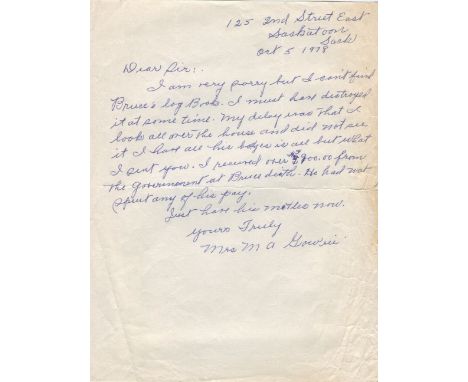 125 2nd Street East
Saskatoon
Sask
Oct 5 1978
Dear Sir:.
I am very sorry but I can't find
Bruce's log Book. I must have destroyed
it at some time. My delay was that I
look all over the house and did not see
it I have all his badges is all but what
I sent you. I received over 900.00 from
the Government at Bruce death. He had not
spent any of his pay.
Just have his medles now.
Yours Truly
Mrs M A